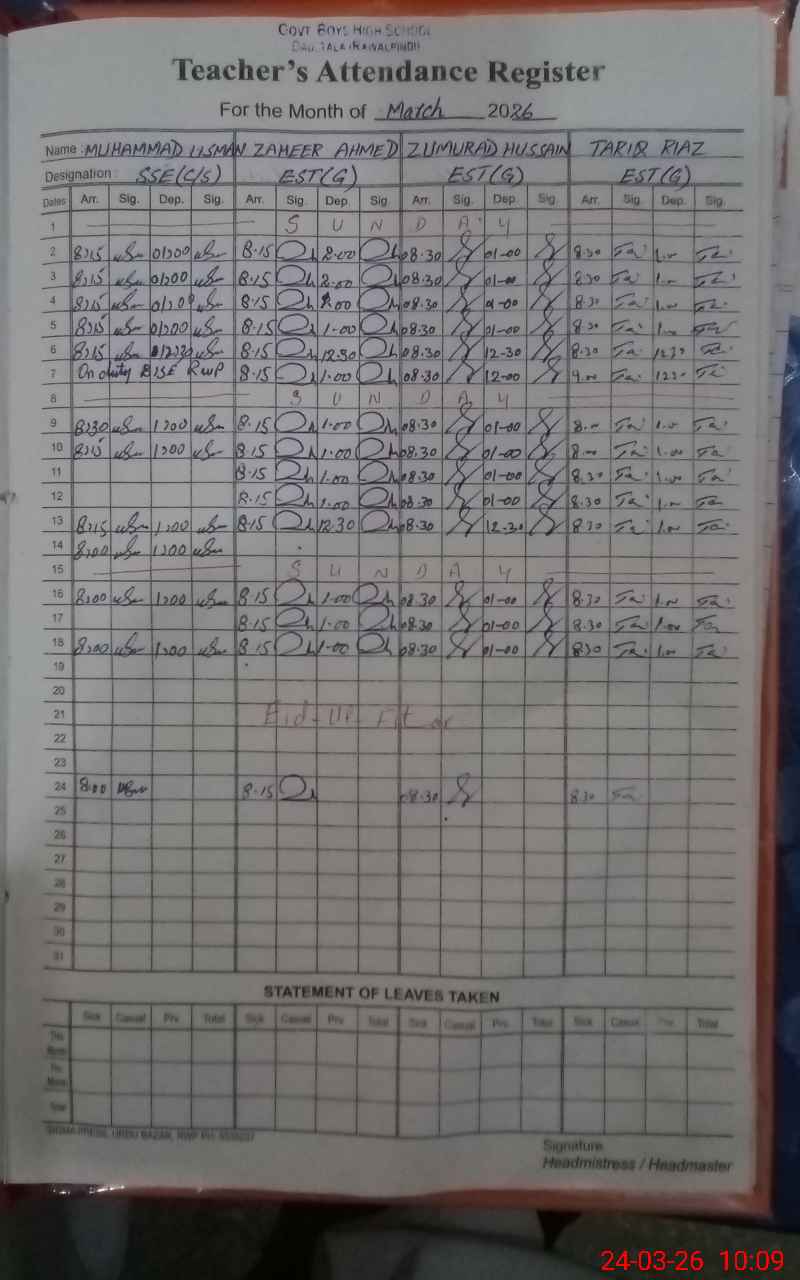 GOVT BOYS HIGH SCHOOL
DAULTALA (RAWALPINDI)
Teacher's Attendance Register
For the Month of March 2026
Name : MUHAMMAD USMAN ZAHEER AHMED ZUMURAD HUSSAIN TARIQ RIAZ
Designation : SSE(C/S) EST(G) EST(G) EST(G)
Dates Arr. Sig. Dep. Sig. Arr. Sig. Dep. Sig. Arr. Sig. Dep. Sig. Arr. Sig. Dep. Sig.
1 S U N D A Y
2 8:15 01:00 8.15 2.00 08.30 01-00 8.30 1.00
3 8:15 01:00 8.15 2.00 08.30 01-00 8.30 1.00
4 8:15 01:00 8.15 08.30 8.30 1.00
5 8:15 01:00 8.15 1.00 08.30 01-00 8.30 1.00
6 8:15 12:30 8.15 12.30 08.30 12-30 8.30 1230
7 On duty BISE RWP 8.15 1.00 08.30 12-00 9.00 1230
8 S U N D A Y
9 8:30 1:00 8.15 1.00 08.30 01-00 8.00 1.00
10 8:15 1:00 8.15 1.00 08.30 01-00 8.00 1.00
11 8.15 1.00 08.30 01-00 8.30 1.00
12 8.15 1.00 08.30 01-00 8.30 1.00
13 8:15 1:00 8.15 12.30 08.30 12-30 8.30 1.00
14 8:00 1:00
15 S U N D A Y
16 8:00 1:00 8.15 1.00 08.30 01-00 8.30 1.00
17 8.15 1.00 08.30 01-00 8.30 1.00
18 8:00 1:00 8.15 1.00 08.30 01-00 8.30 1.00
19
20
21 Eid-Ul-Fitar
22
23
24 8:00 8.15 08.30 8.30
25
26
27
28
29
30
31
STATEMENT OF LEAVES TAKEN
Sick Casual Prv. Total Sick Casual Prv. Total Sick Casual Prv. Total Sick Casual Prv. Total
This Month
Pre. Month
Total
Signature
Headmistress / Headmaster
24-03-26 10:09